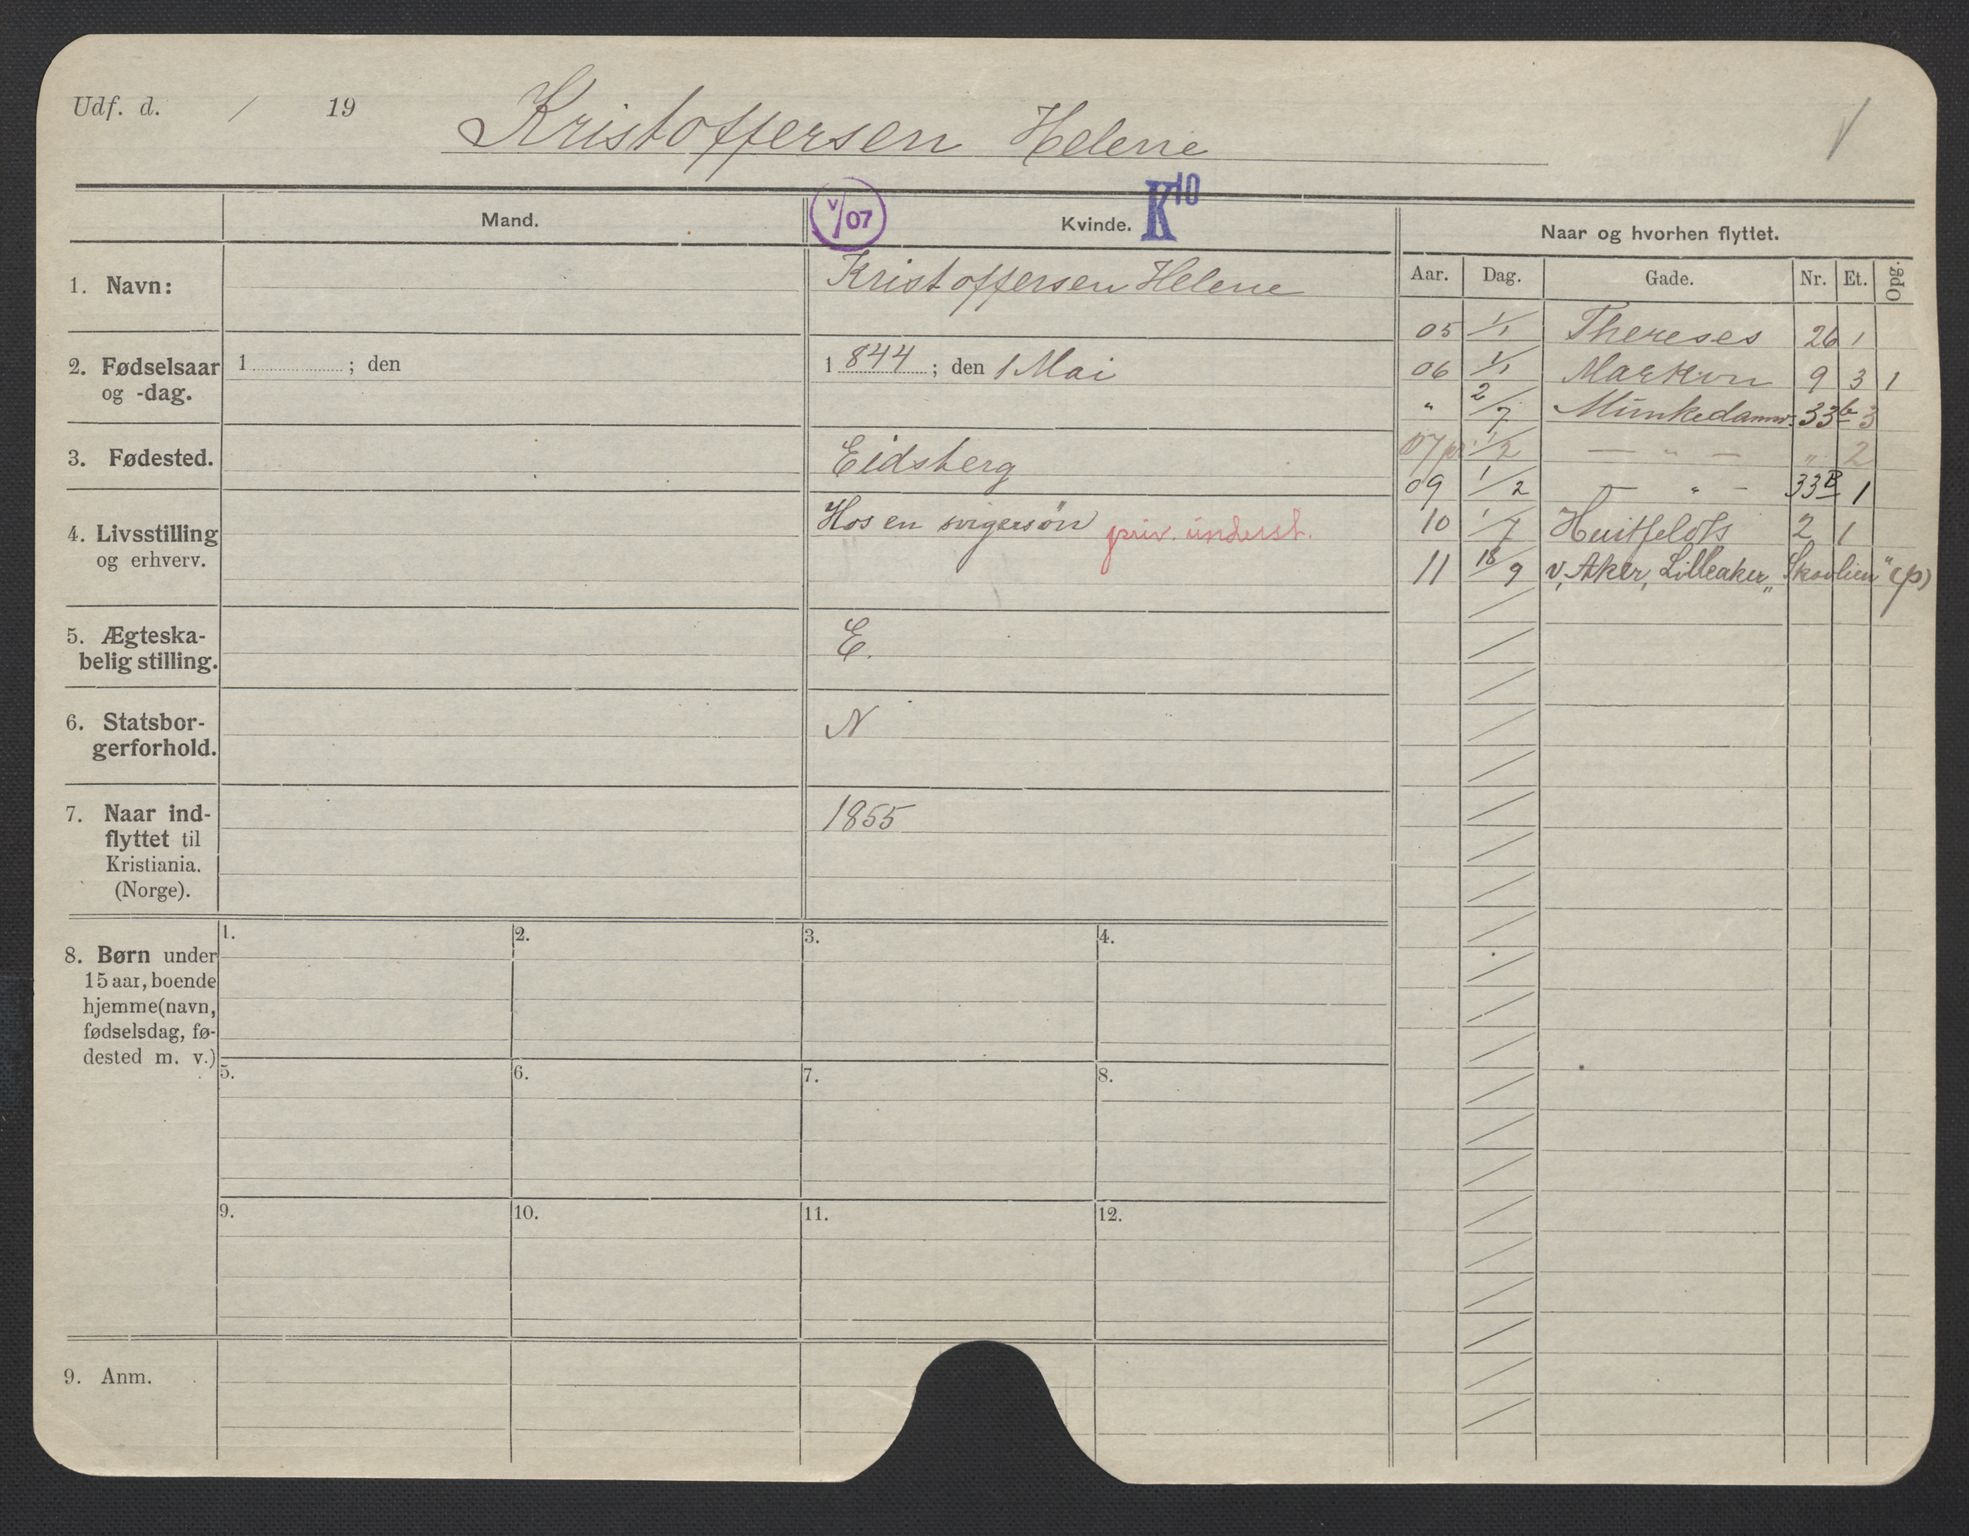 Udf. d. / 19 Kristoffersen Helene
Mand.
V/07
Kvinde.
K10
Naar og hvorhen flyttet.
Aar. Dag. Gade. Nr. Et. Opg.
1. Navn:
Kristoffersen Helene
2. Fødselsaar
og -dag.
1 ; den
1 844 ; den 1 Mai
3. Fødested.
Eidsberg
4. Livsstilling
og erhverv.
Hos en svigersøn priv. underst.
5. Ægteska-
belig stilling.
E.
6. Statsbor-
gerforhold.
N
7. Naar ind-
flyttet til
Kristiania.
(Norge).
1855
05 1/1 Thereses 26 1
06 1/1 Markvn 9 3 1
" 2/7 Munkedamsv. 33b 3
07 1/2 — " — " 2
09 1/2 — " — 33B 1
10 1/7 Huitfeldts 2 1
11 18/9 V. Aker, Lilleaker, "Skovlien" (p)
8. Børn under
15 aar, boende
hjemme (navn,
fødselsdag, fø-
dested m. v.)
1. 2. 3. 4.
5. 6. 7. 8.
9. 10. 11. 12.
9. Anm.